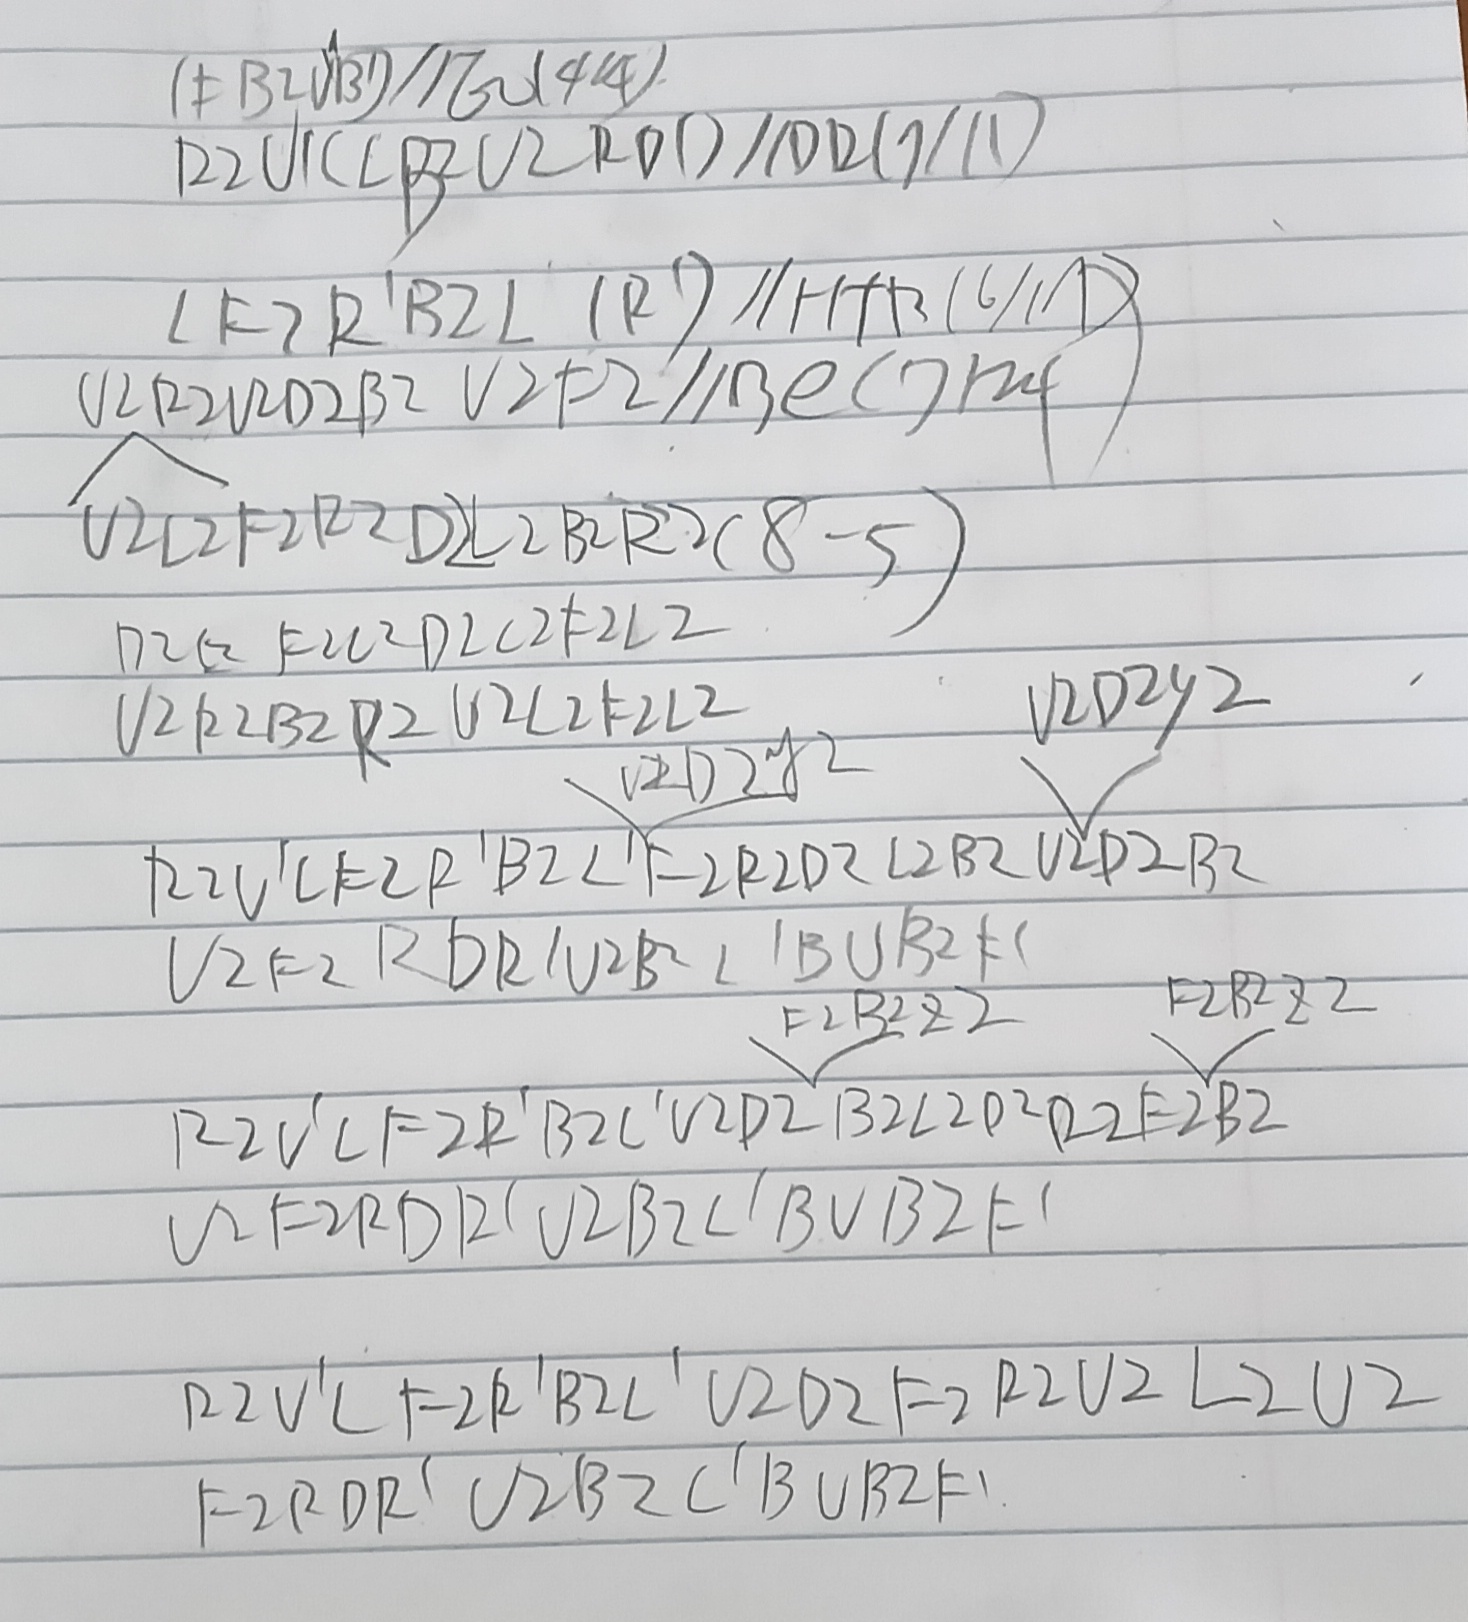 (F B2U'B')//Eo(4/4)
R2U'(LB2U2RD')//DR(7/11)
LF2R'B2L'(R')//HTR(6/17)
U2R2U2D2B2 U2F2//Be(7/24
U2L2F2R2D2L2B2R2(8-5)
F2L2D2L2F2L2
U2R2B2R2U2L2F2L2
U2D2y2
U2D2y2
R2U'LF2R'B2L'F2R2D2L2B2U2D2B2
U2F2RDR'U2B2L'BUB2F'
F2B2z2
F2B2z2
R2U'LF2R'B2L'U2D2B2L2D2R2F2B2
U2F2RDR'U2B2L'BUB2F'
R2U'LF2R'B2L'U2D2F2R2U2L2U2
F2RDR'U2B2L'BUB2F'